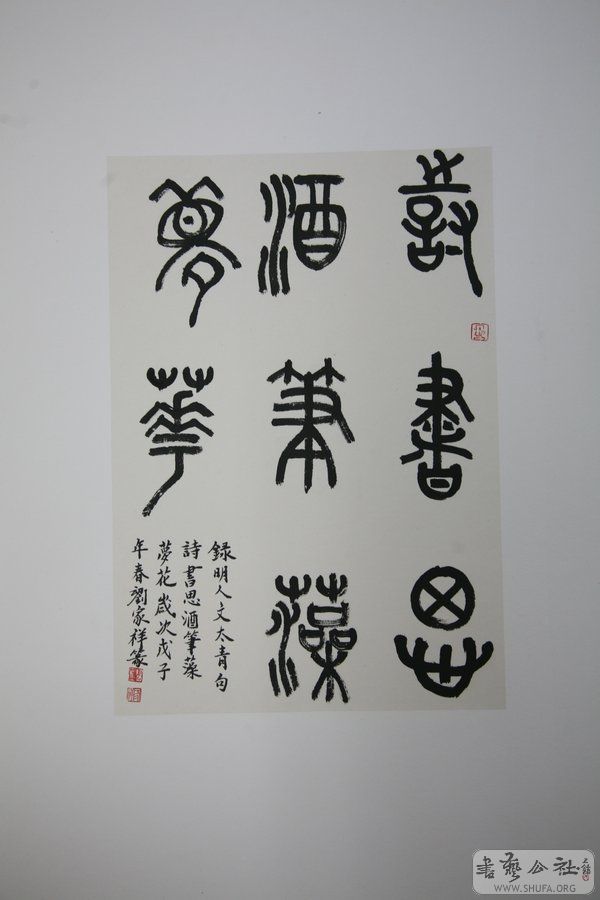 詩書思
酒筆藻
夢華
錄明人文太青句
詩書思酒筆藻
夢花歲次戊子
年春劉家祥篆
書藝公社
WWW.SHUFA.ORG